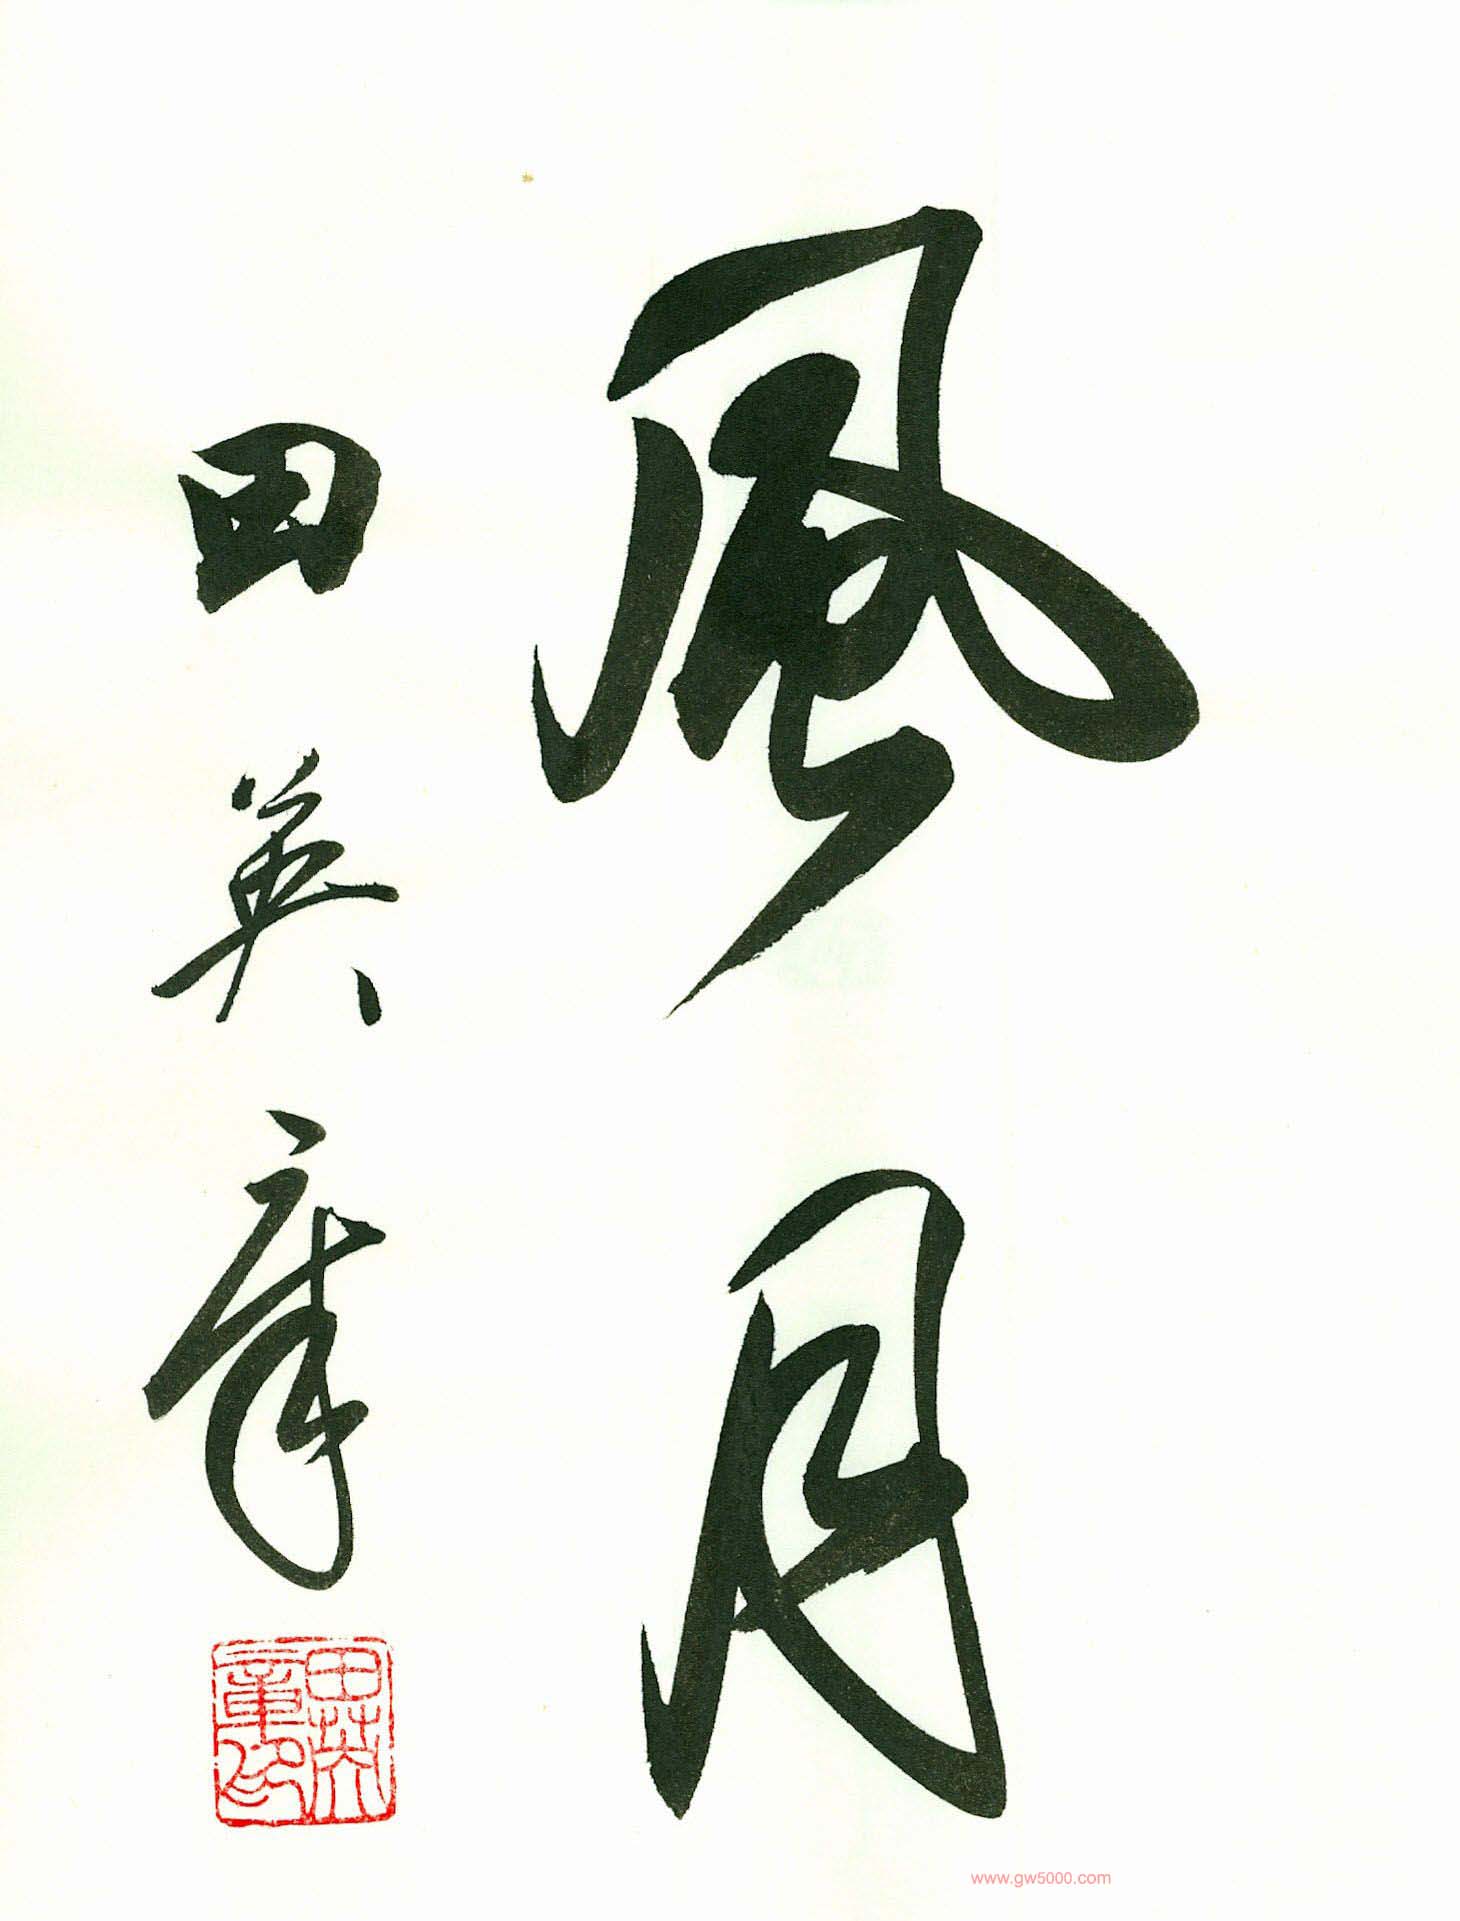 風月
田英章
田英章印
www.gw5000.com